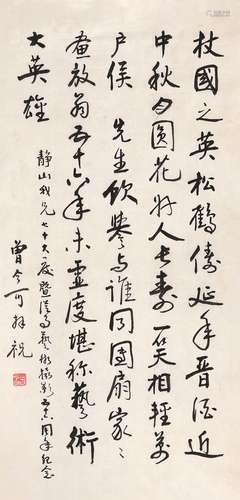 杖國之英松鶴儔延年晉酒近
中秋月圓花好人長壽天相輕萬
戶侯 先生飲譽与誰同團扇家〻
畫放翁五十六年未虛度堪称藝術
大英雄
靜山我兄七十大慶暨從事藝術攝影周年紀念
曾今可拜祝